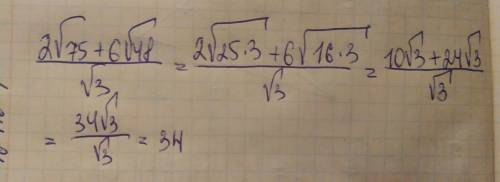 (2√75 + 6√48)/√3 = (2√(25·3) + 6√(16·3))/√3 = (10√3 + 24√3)/√3
= 34√3/√3 = 34